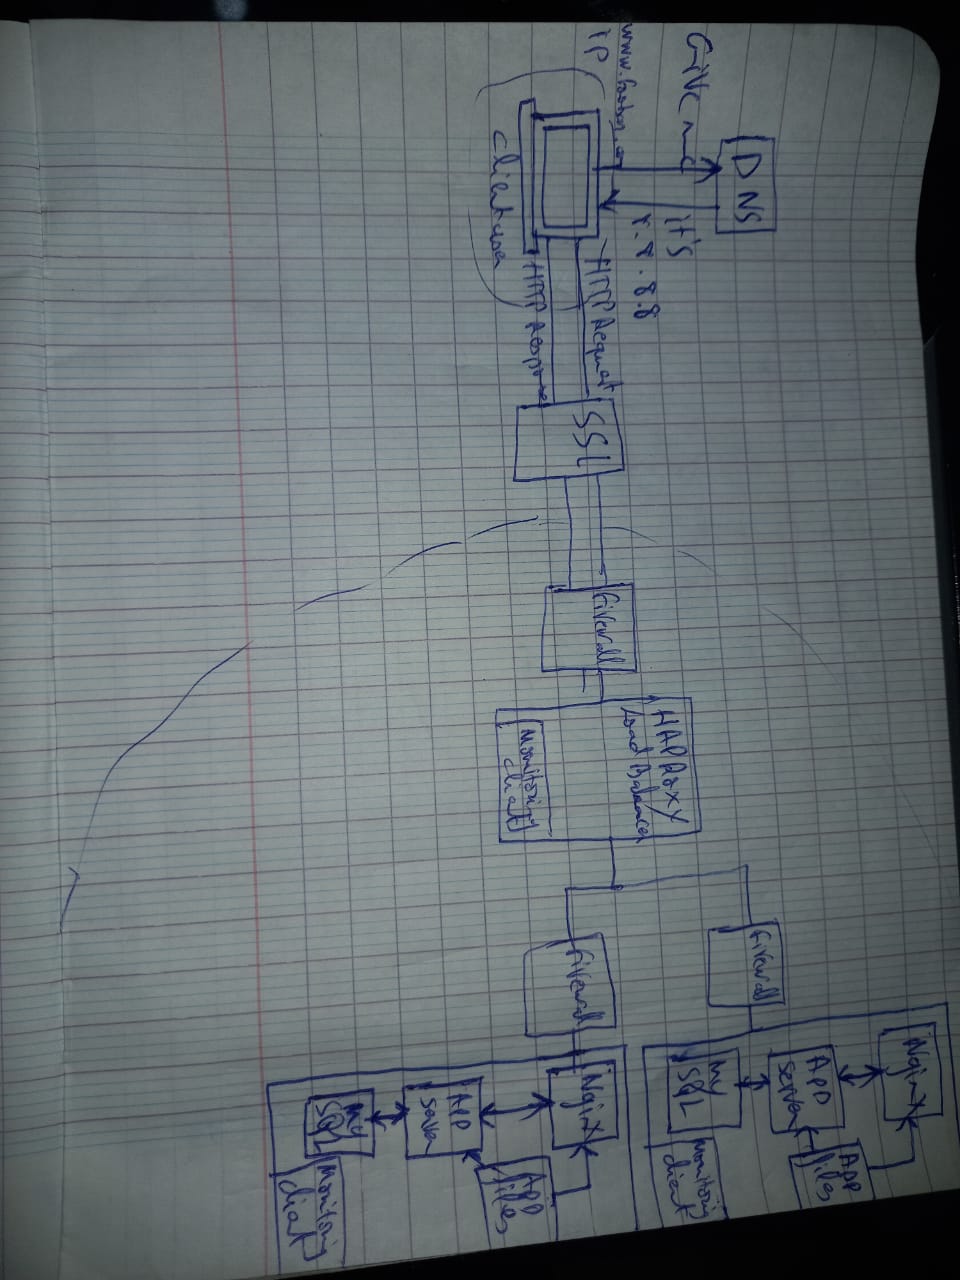 DNS
Give me
www.foobar.com
ip
it's
8.8.8.8
Client user
HTTP Request
HTTP Response
SSL
firewall
HAPROXY
Load Balancer
Monitoring
client
firewall
Nginx
APP
server
APP
files
MY
SQL
Monitoring
client
firewall
Nginx
APP
server
APP
files
MY
SQL
Monitoring
client